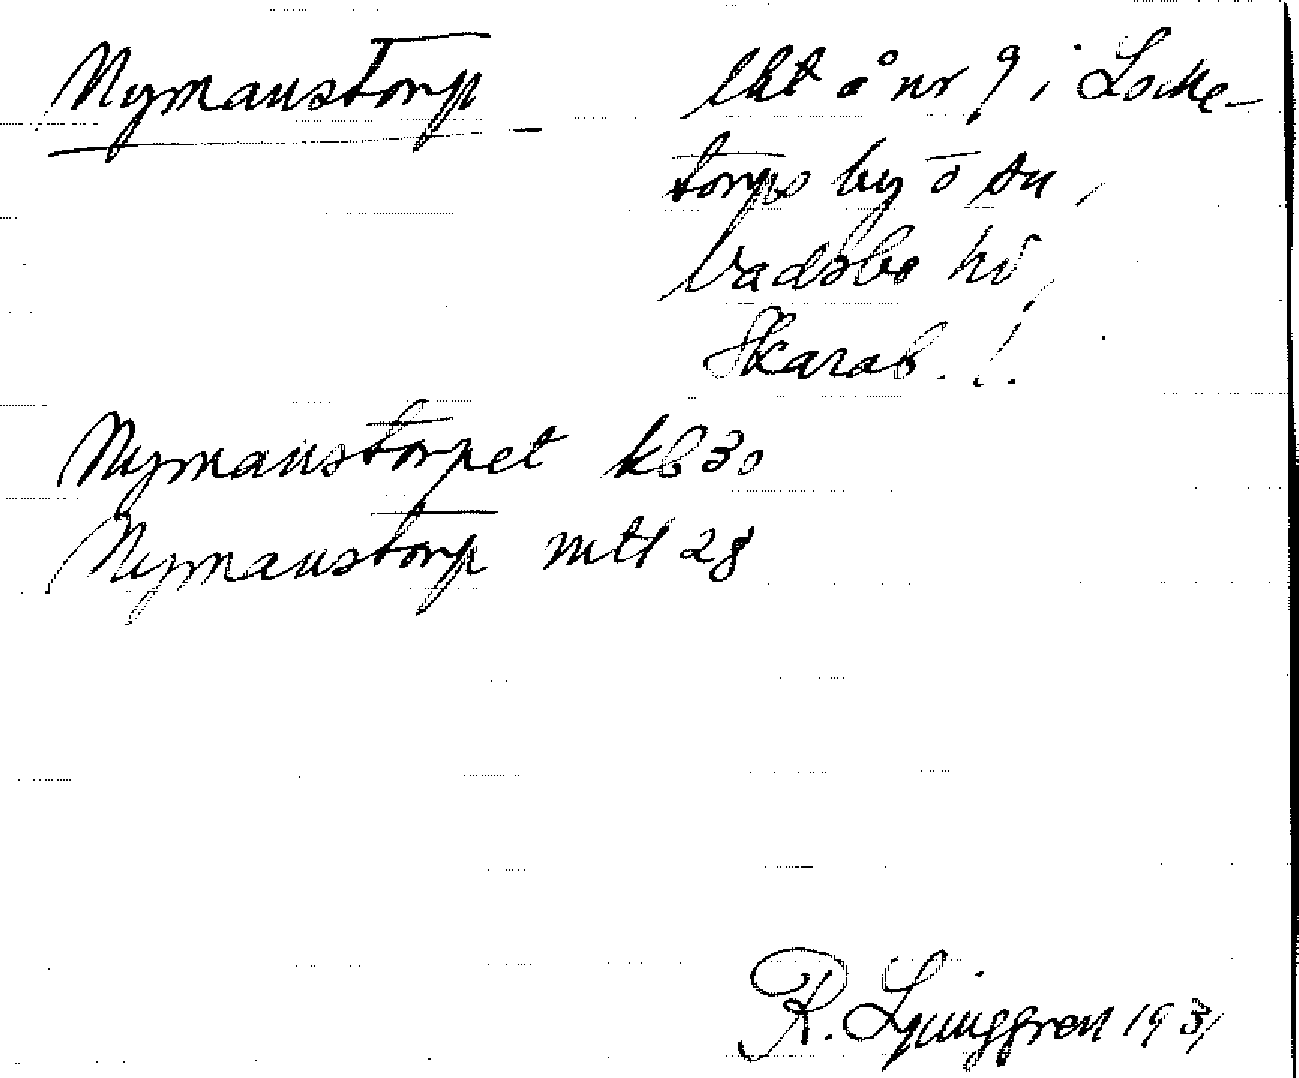 Nymanstorp lht å nr 9 i Locke-
torps by
Vadsbo hd,
Skarab. !
Nymanstorpet kb 30
Nymanstorp mtl 28
R. Ljunggren 1931